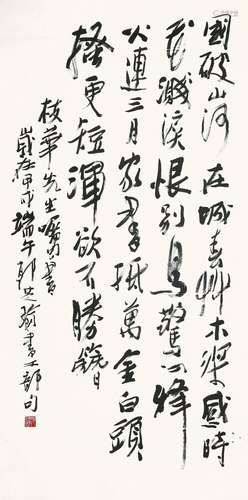 國破山河在城春草木深感時
花濺淚恨別鳥驚心烽
火連三月家書抵萬金白頭
搔更短渾欲不勝簪
枝華先生
歲在甲戌端午書工部句